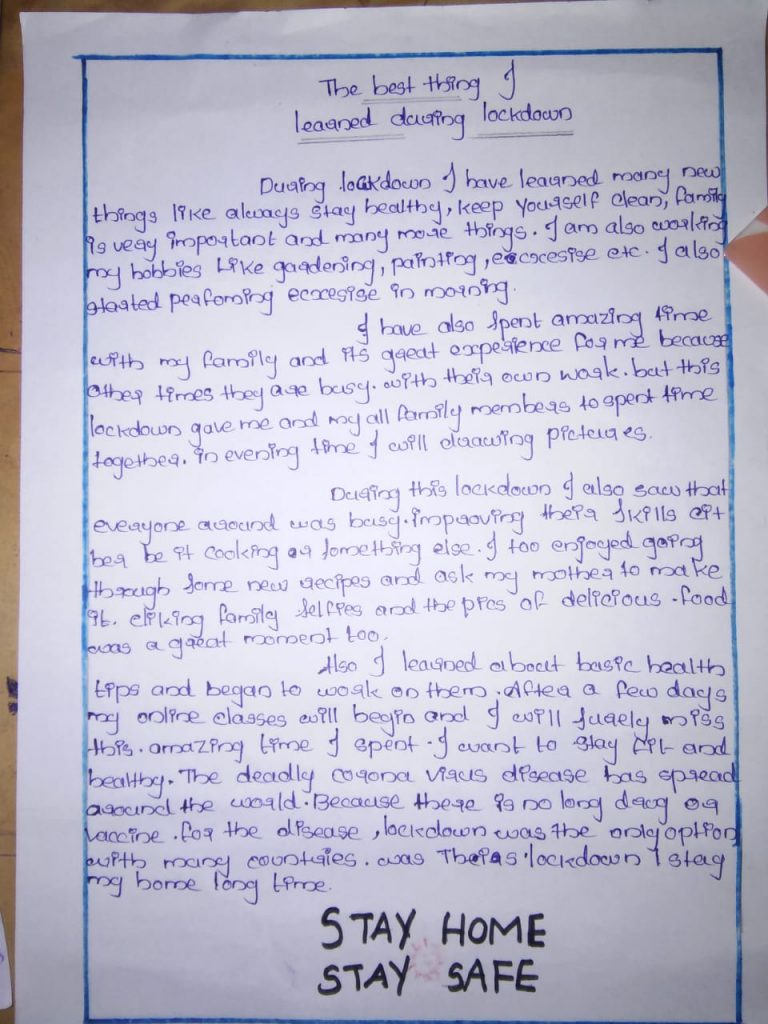 The best thing I
learned during lockdown
During lockdown I have learned many new
things like always stay healthy, keep yourself clean, family
is very important and many more things. I am also working
my hobbies like gardening, painting, excxcesise etc. I also
started perfoming ecxcesise in morning.
I have also spent amazing time
with my family and its great experience for me because
other times they are busy. with their own work. but this
lockdown gave me and my all family members to spent time
together. in evening time I will drawing pictures.
During this lockdown I also saw that
everyone around was busy. improving their skills eit
her be it cooking or something else. I too enjoyed going
through some new recipes and ask my mother to make
it. cliking family selfies and the pics of delicious. food
was a great moment too.
Also I learned about basic health
tips and began to work on them. After a few days
my online classes will begin and I will surely miss
this. amazing time I spent. I want to stay fit and
healthy. The deadly corona virus disease has spread
around the world. Because there is no long drug or
vaccine. for the disease, lockdown was the only option
with many countries. was lockdown I stay
my home long time.
STAY HOME
STAY SAFE